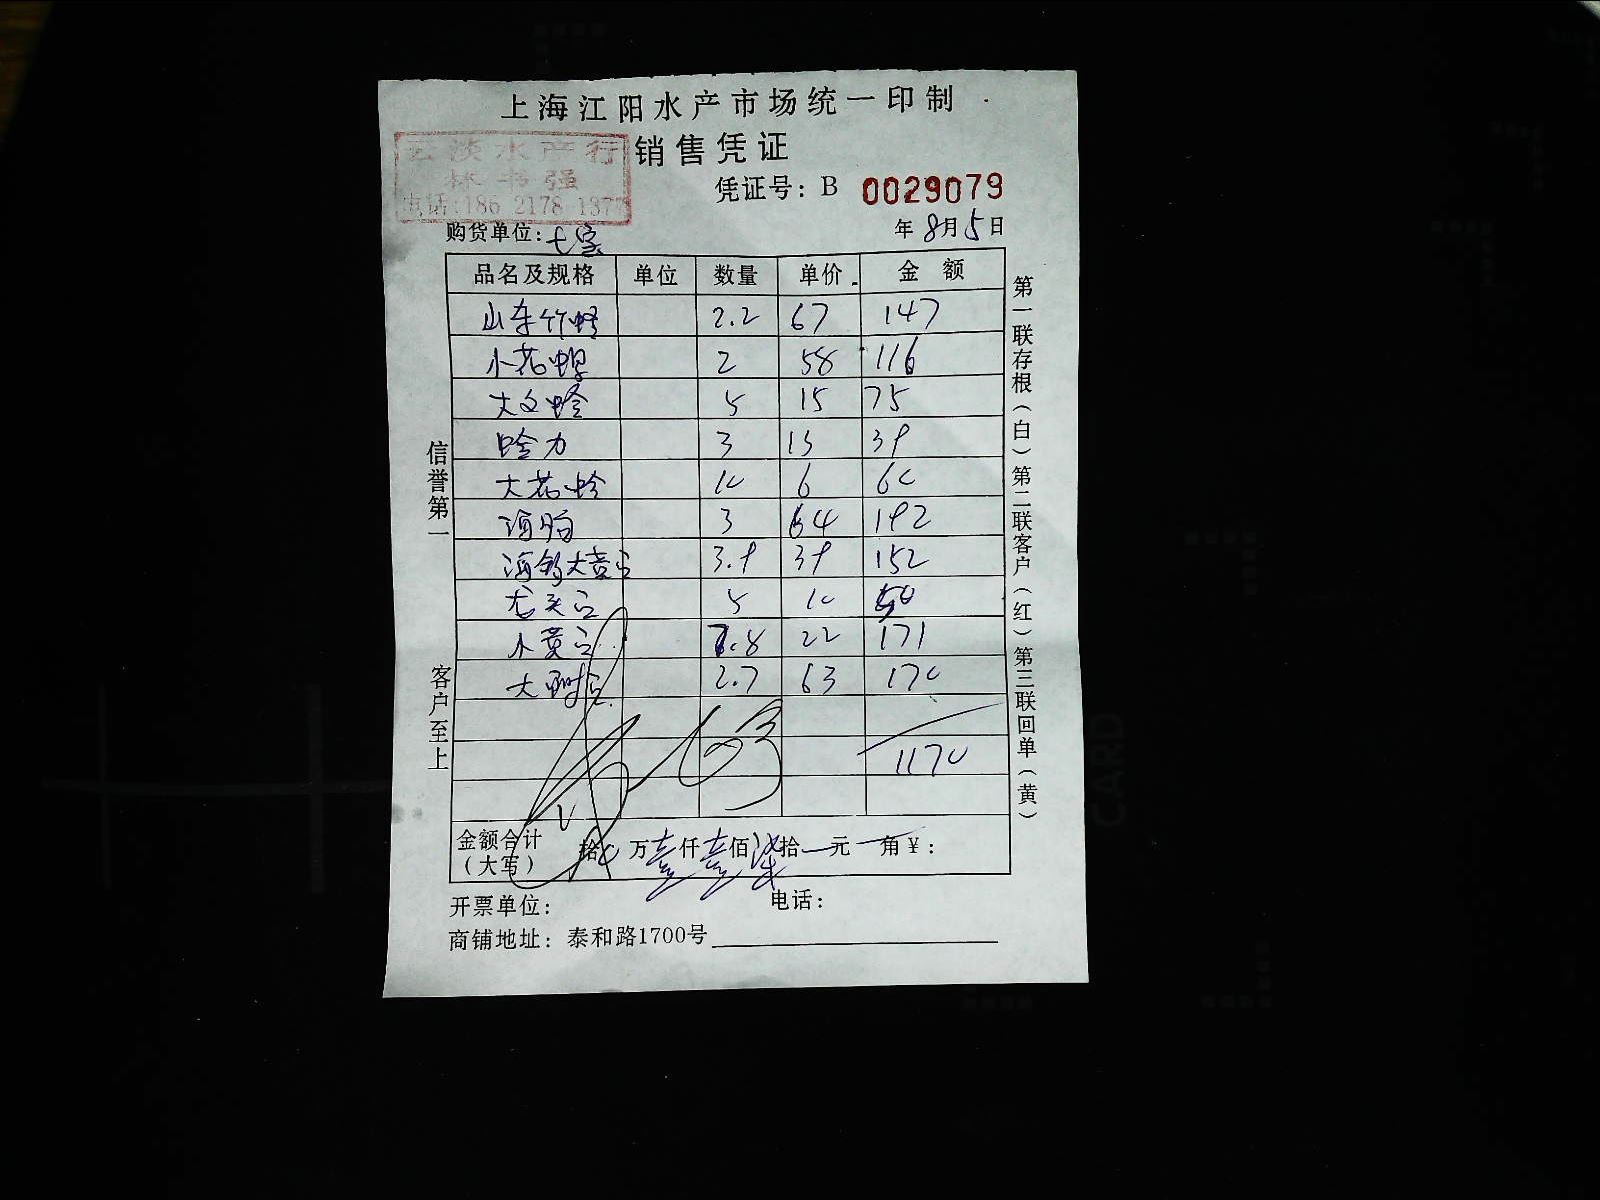 上海江阳水产市场统一印制
云淡水产行
销售凭证
林书强
凭证号：B 0029079
电话:186 2178 1377
购货单位：七宝
年8月5日
品名及规格 单位 数量 单价 金额
山东竹蛏 2.2 67 147
小花螺 2 58 116
大文蛤 5 15 75
蛤力 3 13 39
大花蛤 10 6 60
海肠 3 64 192
3.9 39 152
5 10 50
小黄 7.8 22 171
大 2.7 63 170
1170
金额合计（大写） 拾 万壹仟壹佰柒拾元角￥：
开票单位： 电话：
商铺地址：泰和路1700号
信誉第一
客户至上
第一联存根（白）第二联客户（红）第三联回单（黄）
CARD